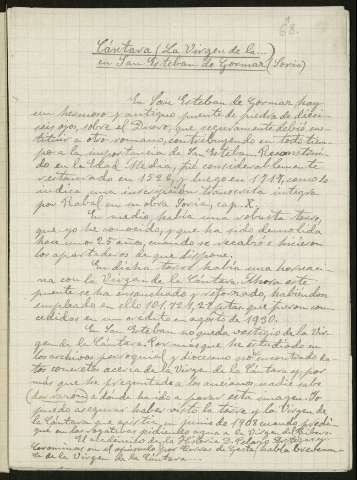 68.
Cántara (La Virgen de la...)
en San Esteban de Gormaz (Soria)
En San Esteban de Gormaz hay
un hermoso y antiguo puente de piedra de dieci-
seis ojos, sobre el Duero, que seguramente debió sus-
tituir a otro romano, contribuyendo en todo tiem-
po a la importancia de San Esteban. Reconstrui-
do en la Edad Media, fué considerablemente
restaurado en 1526, y luego en 1719, como lo
indica una inscripción transcrita íntegra
por Rabal en su obra Soria, cap. X.
En medio había una robusta torre,
que yo he conocido, y que ha sido demolida
hace unos 25 años, cuando se recalzó e hicieron
los apartaderos de que dispone.
En dicha torre había una hornaci-
na con la Virgen de la Cántara. Ahora este
puente se ha ensanchado y reforzado, habiendose
empleado en ello 101.724,24 ptas que fueron con-
cedidas en un crédito en agosto de 1930.
En San Esteban no queda vestigio de la Vir-
gen de la Cántara. Por más que he estudiado en
los archivos parroquial y diocesano no he encontrado da-
tos concretos acerca de la Virgen de la Cántara y por
más que he preguntado a los ancianos, nadie sabe
(dar razón) a dónde ha ido a parar esta imagen. Yo
puedo asegurar haber visto la torre y la Virgen de
la Cántara que existía en junio de 1908 cuando predi-
qué en las rogativas pidiendo agua a la Virgen del Rivero.
El académico de la Historia D. Pelayo Artigas y
Corominas en el opúsculo Por tierras de Gesta, habla brevemen-
te de la Virgen de la Cántara...